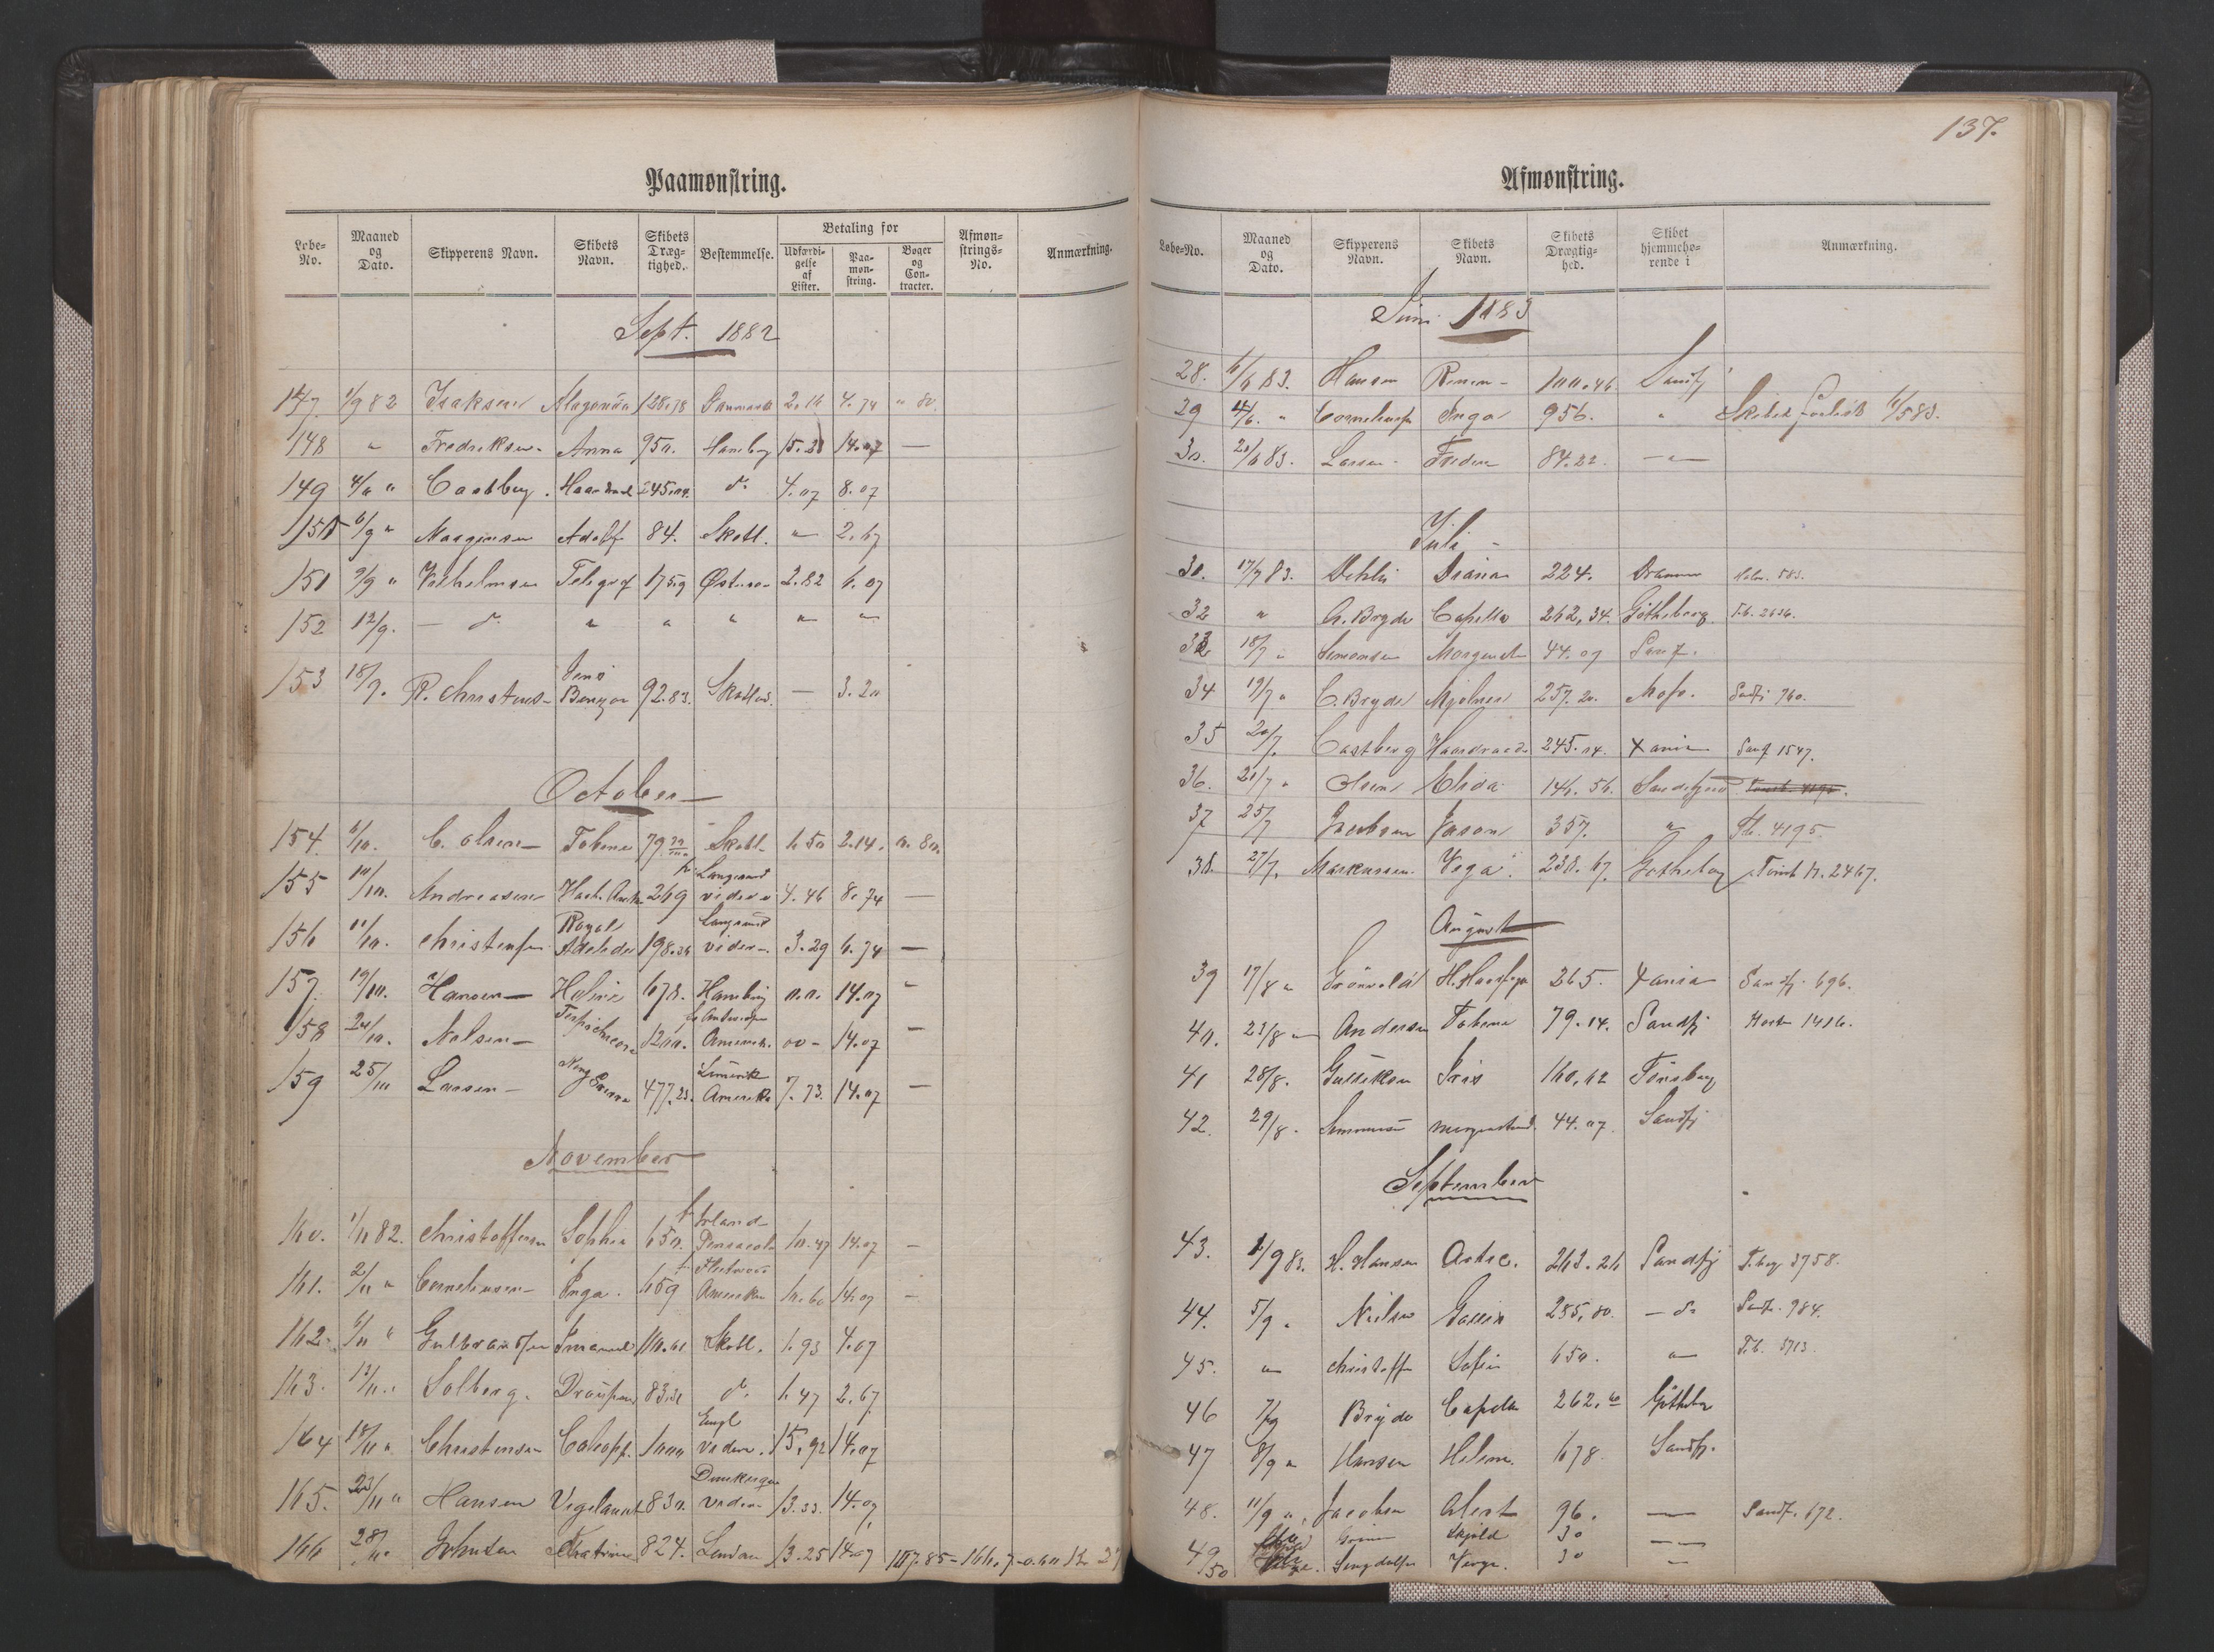 Paamønstring.
Løbe-No. Maaned og Dato. Skipperens Navn. Skibets Navn. Skibets Dræg-tighed. Bestemmelse. Betaling for Udfærdi-gelse af Lister. Paa-møn-string. Bøger og Con-tracter. Afmøn-strings-No. Anmærkning.
Sept. 1882
147 1/9 82 Isaksen 128.78 Danmark 2.14 4.74 " 80.
148 " Fredriksen Anna 950. Hamborg 15.20 14.07 —
149 4/9 " Castberg. Haardraad 245.14. do 4.07 8.07
150 6/9 " Adolf 84. Skotl. " 2.67
151 9/9 " Vilhelmsen Telegraf 175.9 Østersø 2.82 6.07
152 12/9. — do " " " " "
153 18/9. R. Christens- Jens Benzon 92.83. Skotland. — 3.20
October
154. 6/10. C. Olsen Tobine 79 Skotl. 1.50 2.14. 0.80.
155 10/10. Andreasen 269 Langesund videre 4.46 8.74 —
156 11/10. Christensen Royal Adelaide 198.24 Langesund videre 3.29 6.74 —
157. 19/10. Hansen Helene 678. Hamburg 0.0. 14.07 "
158 20/10. Nelsen Terpsichore 1200. Antwerpen Amerik. 00 - 14.07 —
159 25/10 Larsen 477.23. Limerik Amerika 7.73. 14.07 —
November
160. 1/11 82. Christoffersen Sophie 650. f. Irland Pensacola 10.47 14.07 —
161. 2/11 " Corneliusen Inga. 659 f. Fleetwood Amerika 10.60 14.07 —
162. 6/11 " Gulbrandsen Imanuel 110.61 Skotl. 1.93 4.07
163. 12/11 " Solberg. Draupner 83.31 do 1.47 2.67
164 18/11 " Christensen 1000 Engl videre. 15.92 14.07
165. 23/11 " Hansen Vigilant 830. Dunkerque videre 13.33. 14.07
166 28/11 " Johnsen Katrine 824. London 13.25 14.07 107.85
137.
Afmønstring.
Løbe-No. Maaned og Dato. Skipperens Navn. Skibets Navn. Skibets Drægtig-hed. Skibet hjemmehø-rende i Anmærkning.
Juni 1883
28. 6/6 83. Hansen 100.46 Sandfj
29 " Corneliusen Inga 956. " Skibet forlist 11/5 83.
30. 20/6 83. Larsen Freden 84.22. — " —
Juli
31. 17/7 83. Dehli Diana 224. Drammen 583.
32 " A. Bryde Capella 262,34. Gøtheborg. T.b. 2626.
33 18/7 " Simonsen Morgenst 44.07 Sanf.
34 19/7 " C. Bryde Mjølner 257.20. Mosø. Sandfj 760.
35 20/7. Castberg Haardraade 245.14. Xania Sanf 1547.
36. 21/7 " Olsen Elida 146.56. Sandefjord
37 25/7 Jacobsen Jason 357. " Tb. 4195.
38. 27/7. Markussen. Vega. 238.67. Gøtheborg Tønsb N. 2467.
August
39 17/8 " Grönvold 265. Xania Sandfj. 696.
40. 23/8 " Andersen Tobine 79.14. Sandfj 1416.
41 28/8. Iris 160,62 Tönsberg
42. 29/8. Simonsen Morgenstjerne 44.07. Sandfj
September
43. 1/9 83. H. Hansen Activ. 263.26 Sandfj T.berg 3758.
44. 5/9 " Nielsen 255,80. — do Sandf. 984.
45. " Christoff Sofie 650. " T.b. 3713.
46 7/9 Bryde Capella 262. Götheb
47 8/9 " Hansen Helene 678. Sandfj.
48. 11/9 " Jacobsen Alert 96. — Sandf. 672.
49 Grim Skjold 30 —
50 Vergo. 30 "